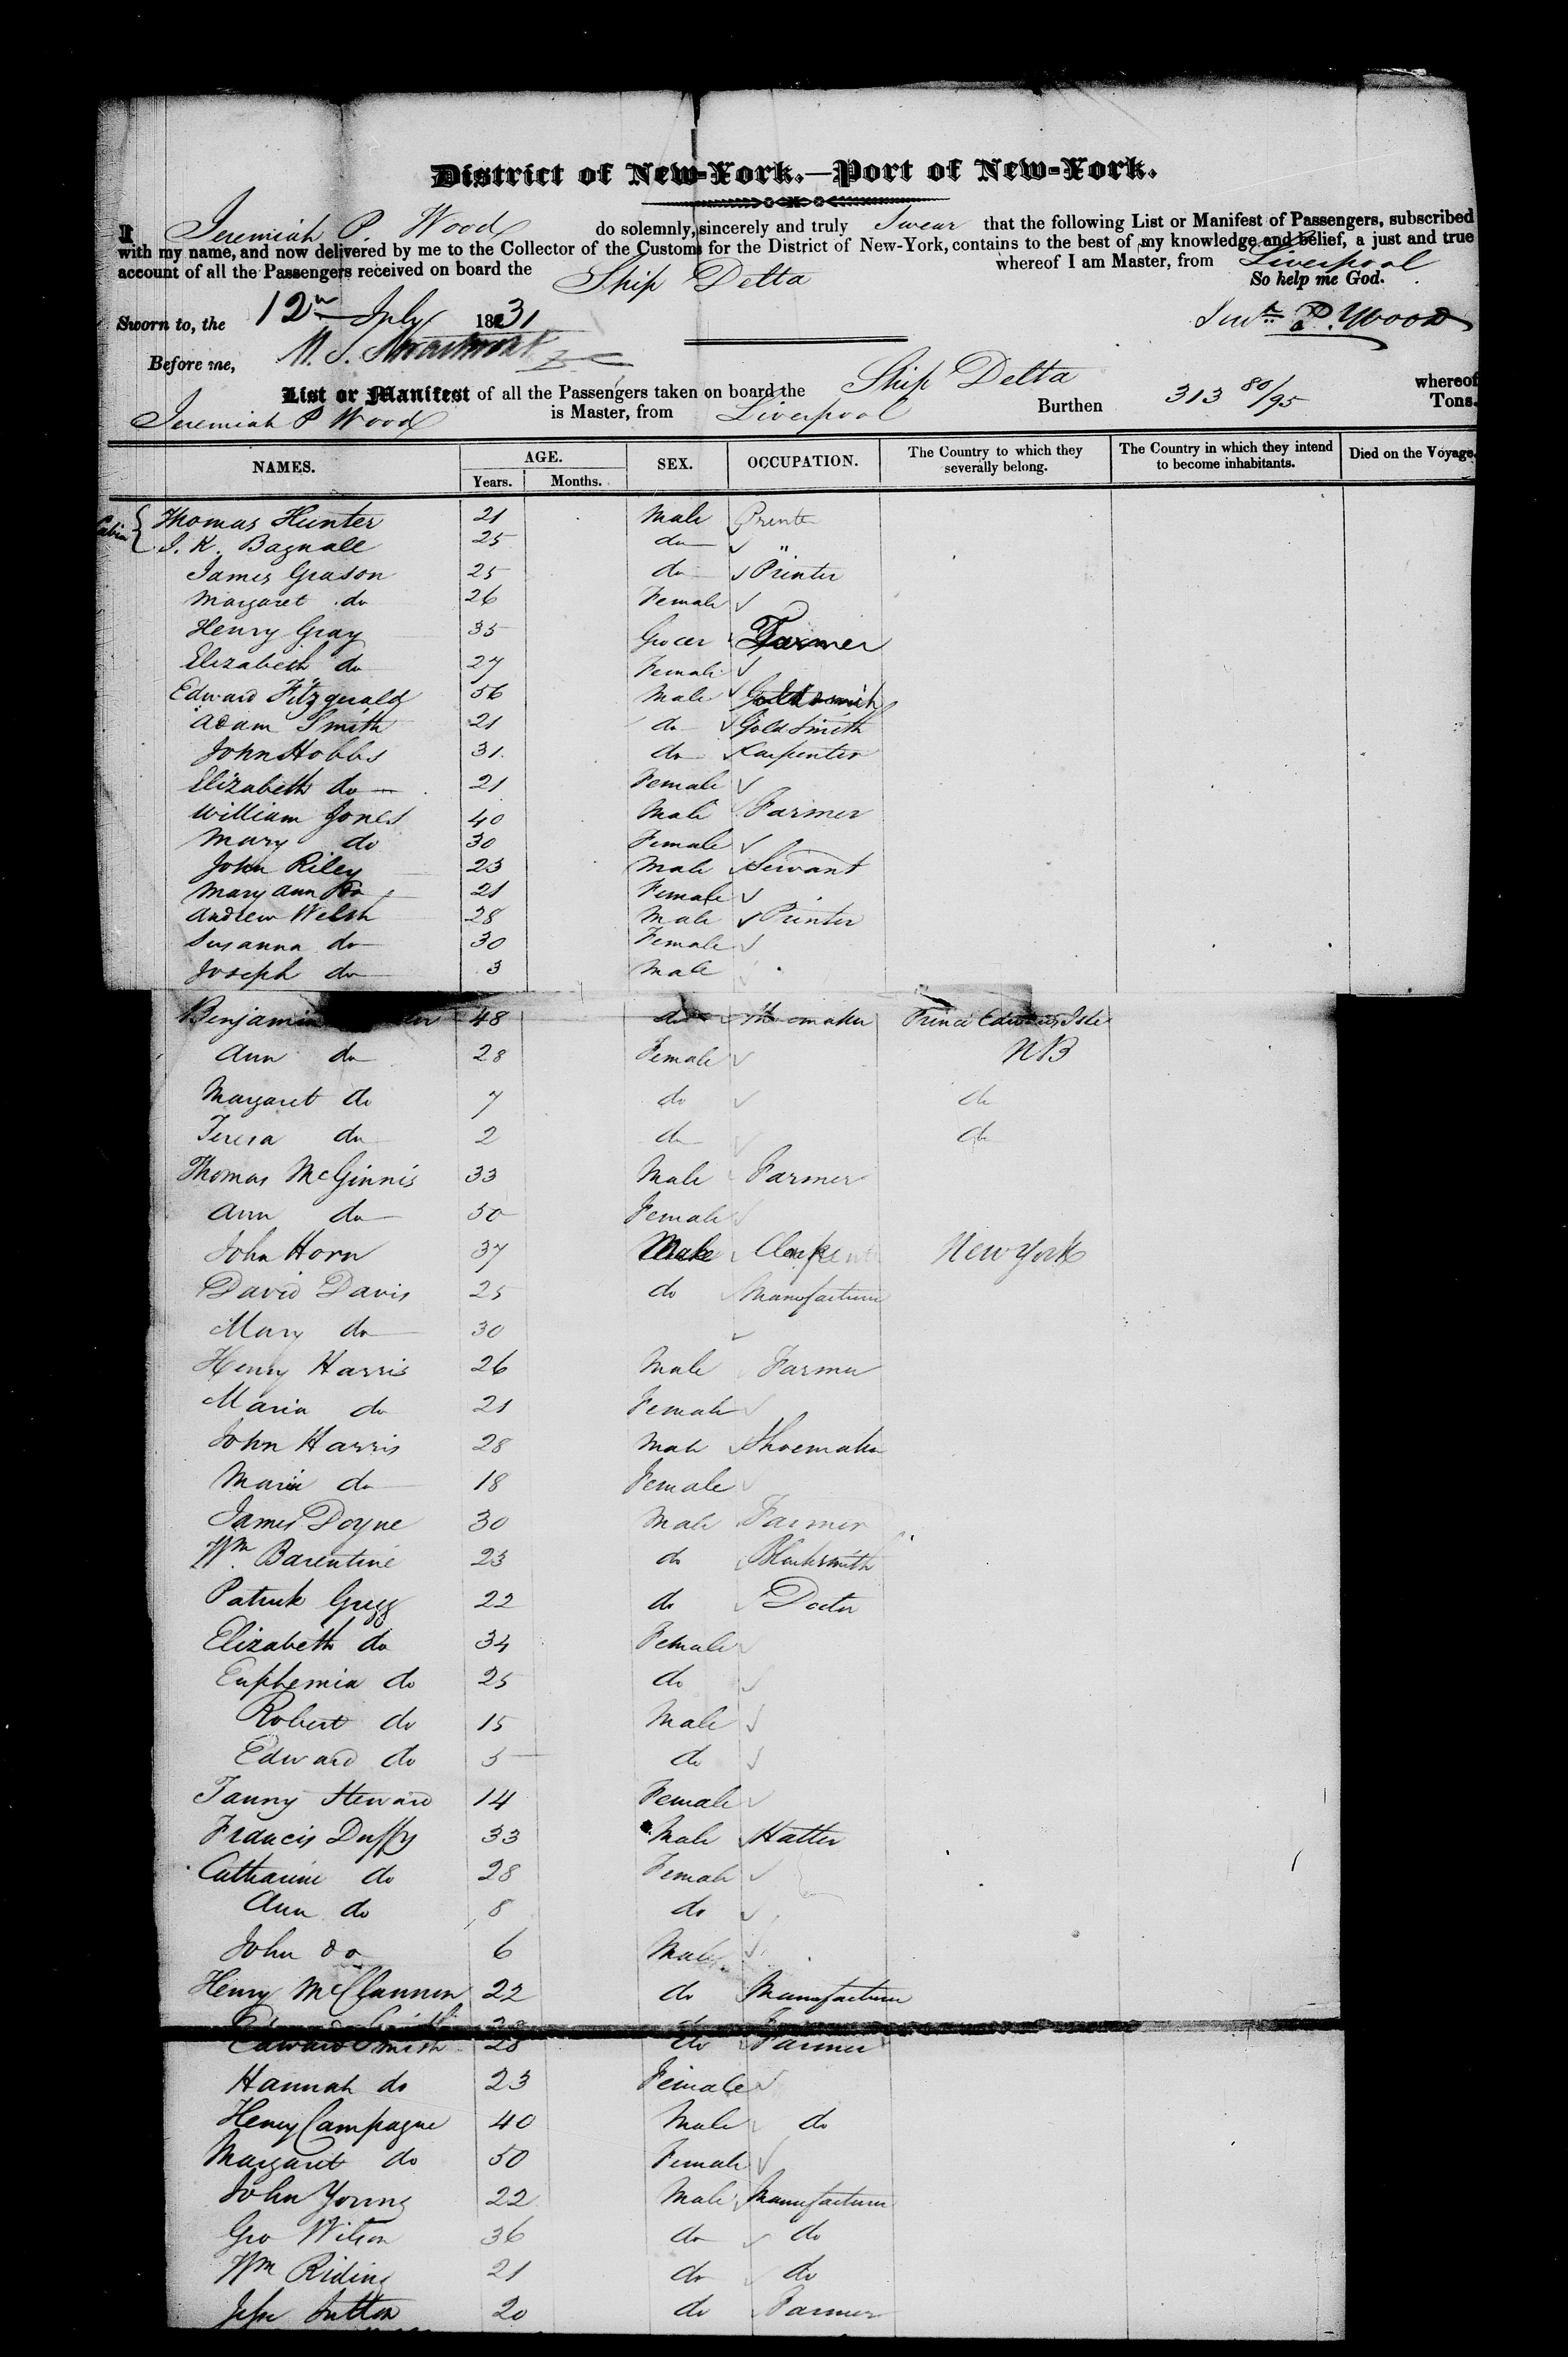 District of New-York.—Port of New-York.
I Jeremiah P. Wood do solemnly, sincerely and truly Swear that the following List or Manifest of Passengers, subscribed
with my name, and now delivered by me to the Collector of the Customs for the District of New-York, contains to the best of my knowledge and belief, a just and true
account of all the Passengers received on board the Ship Delta whereof I am Master, from Liverpool
So help me God.
Sworn to, the 12th July 1831 P. Wood
Before me,
List or Manifest of all the Passengers taken on board the Ship Delta whereof
Jeremiah P Wood is Master, from Liverpool Burthen 313 80/95 Tons.
NAMES. AGE. SEX. OCCUPATION. The Country to which they severally belong. The Country in which they intend to become inhabitants. Died on the Voyage.
Years. Months.
Cabin { Thomas Hunter 21 Male Printer
J. K. Bagnall 25 do "
James Grason 25 do Printer
Margaret do 26 Female
Henry Gray 35 Grocer Farmer
Elizabeth do 27 Female
Edward Fitzgerald 56 Male Goldsmith
Adam Smith 21 do Gold Smith
John Hobbs 31 do Carpenter
Elizabeth do 21 Female
William Jones 40 Male Farmer
Mary do 30 Female
John Riley 23 Male Servant
Mary Ann do 21 Female
Andrew Welsh 28 Male Printer
Susanna do 30 Female
Joseph do 3 Male
Benjamin 48 do Prince Edwards Isle
Ann do 28 Female NB
Margaret do 7 do do
Teresa do 2 do do
Thomas McGinnis 33 Male Farmer
Ann do 30 Female
John Horn 37 Male New York
David Davis 25 do Manufacturer
Mary do 30
Henry Harris 26 Male Farmer
Maria do 21 Female
John Harris 28 Male Shoemaker
Maria do 18 Female
James Doyne 30 Male Farmer
Wm Barentine 23 do Blacksmith
Patrick Gregg 22 do Doctor
Elizabeth do 34 Female
Euphemia do 25 do
Robert do 15 Male
Edward do 5 do
Fanny Steward 14 Female
Francis Duffy 33 Male Hatter
Catharine do 28 Female
Ann do 8 do
John do 6 Male
Henry McClannon 22 do Manufacturer
Edward Smith 28 do Farmer
Hannah do 23 Female
Henry Campagne 40 Male do
Margaret do 50 Female
John Young 22 Male Manufacturer
Geo Wilson 36 do do
Wm Riding 21 do do
Jesse Sutton 20 do Farmer